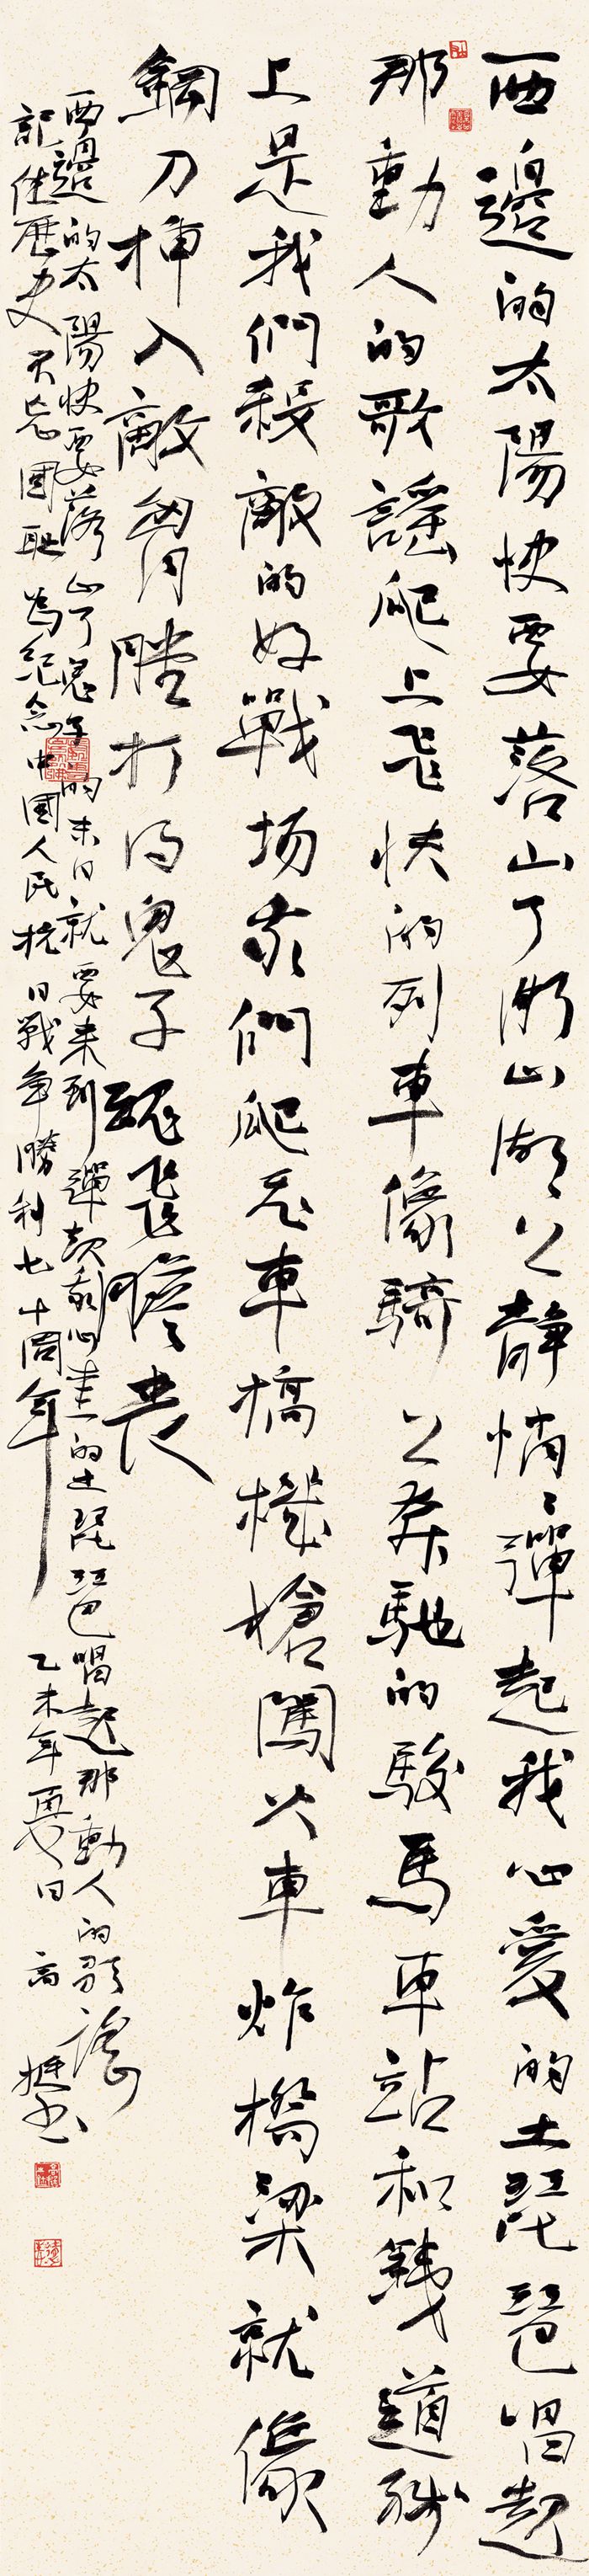 西邊的太陽快要落山了微山湖上靜悄悄彈起我心愛的土琵琶唱起
那動人的歌謠爬上飛快的列車像騎上奔馳的駿馬車站和鐵道線
上是我們殺敵的好戰场我們爬飛車搞機槍闖火車炸橋梁就像
鋼刀插入敵胷膛打得鬼子魂飛膽喪
西邊的太陽快要落山了鬼子的末日就要来到彈起我心愛的土琵琶唱起那動人的歌謠
記住歷史不忘國恥為紀念中國人民抗日戰争勝利七十周年 乙未年夏日 高 书